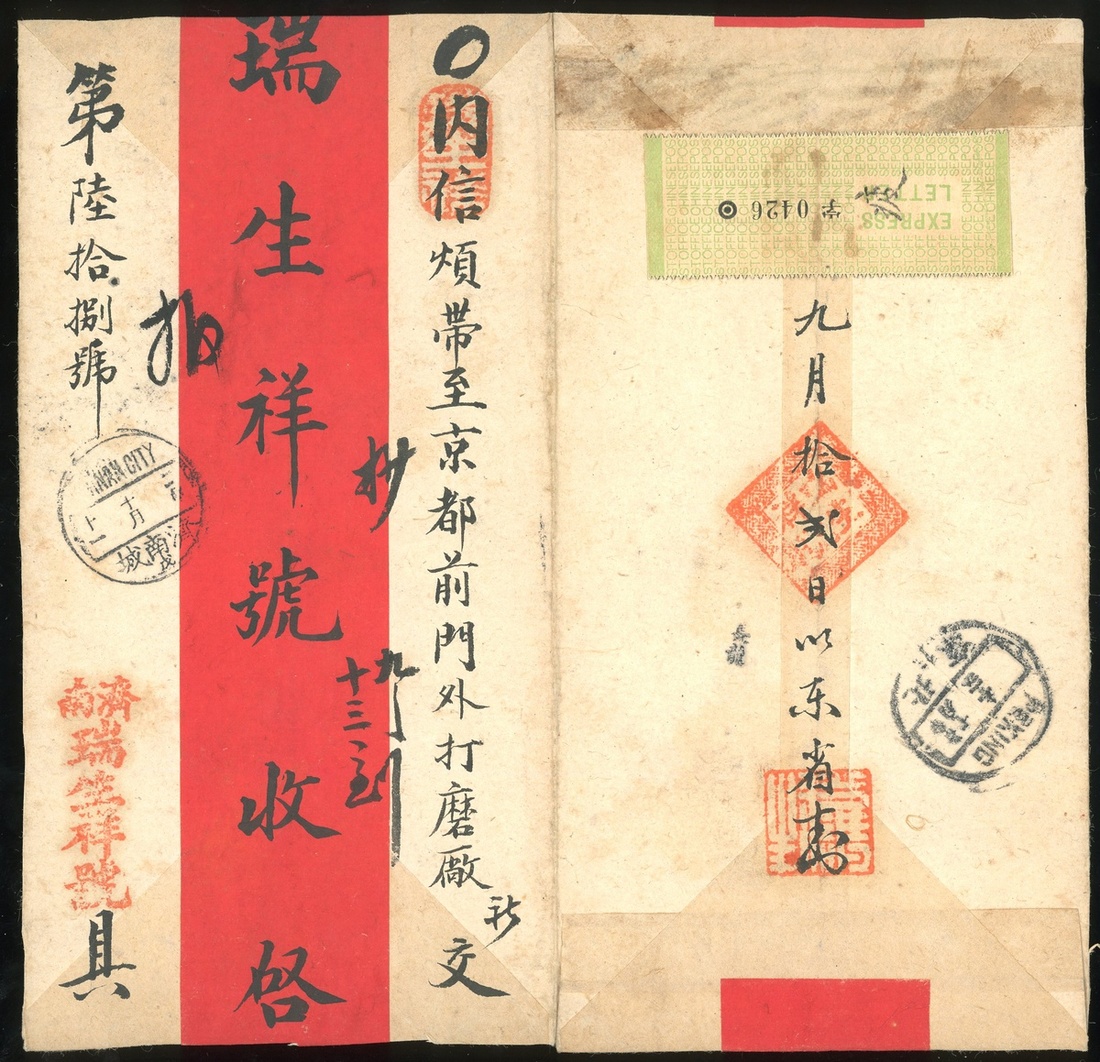 内信煩帶至京都前門外打磨廠
交
瑞生祥號收啓
抄
九月
十三到
第陸拾捌號
NAN CITY
十月
濟南城
濟南
瑞生祥號
具
EXPRESS LETTER
字 0426
九月拾弍日以东省寿
PEKING